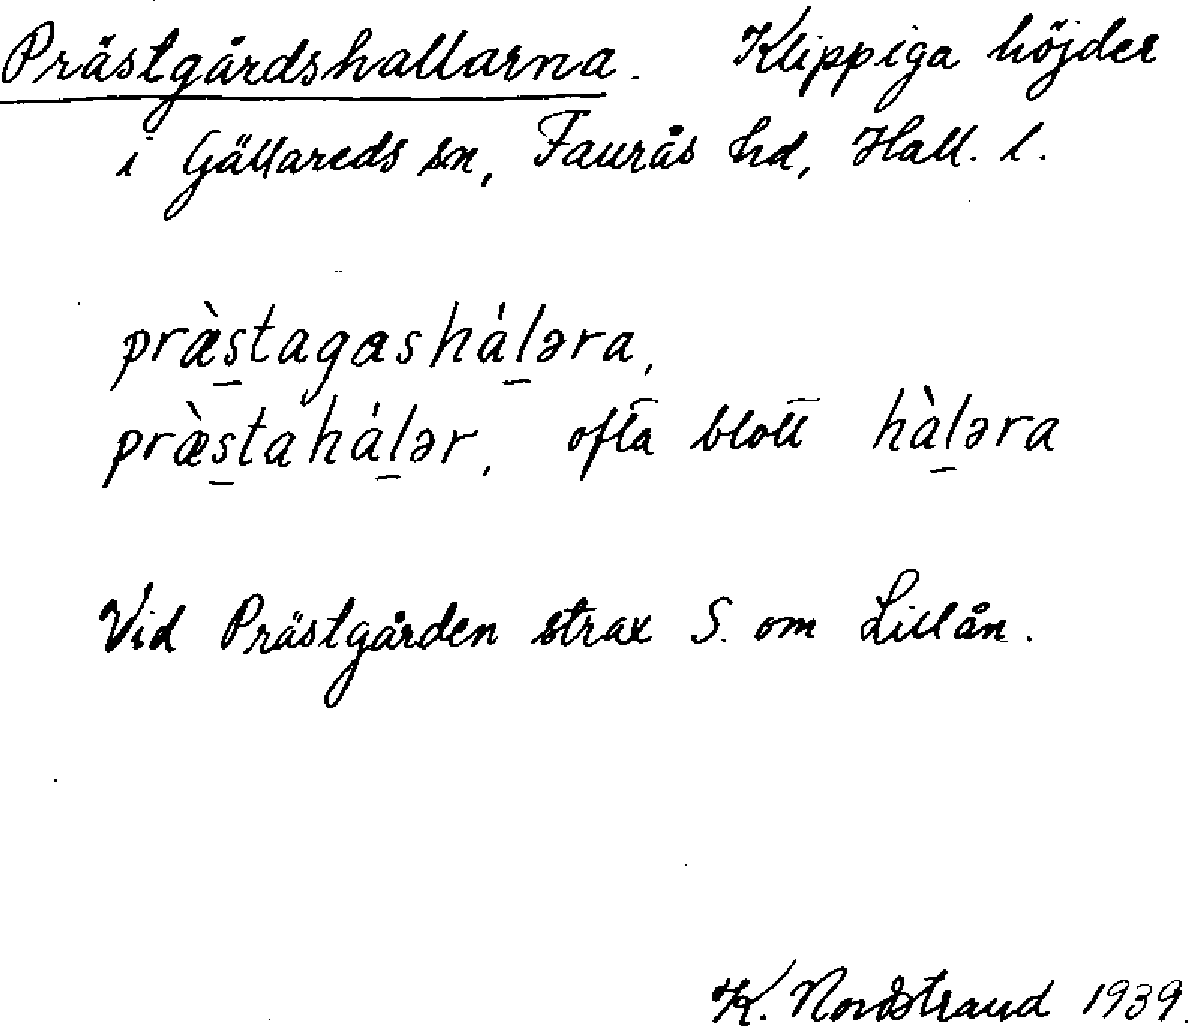 Prästgårdshallarna. Klippiga höjder
i Gällareds sn, Faurås hd, Hall. l.
præ̀s̱tagasháḻəra,
præ̀s̱taháḻər, ofta blott hàḻəra
Vid Prästgården strax S. om Lillån.
K. Nordstrand 1939.